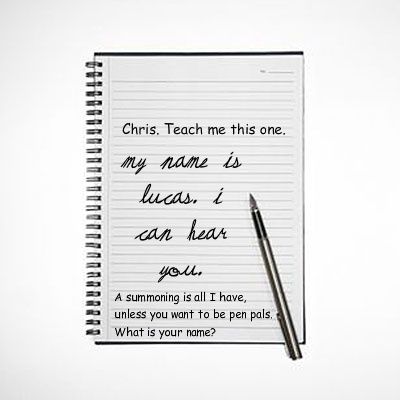 Chris. Teach me this one.
my name is
lucas. i
can hear
you.
A summoning is all I have,
unless you want to be pen pals.
What is your name?